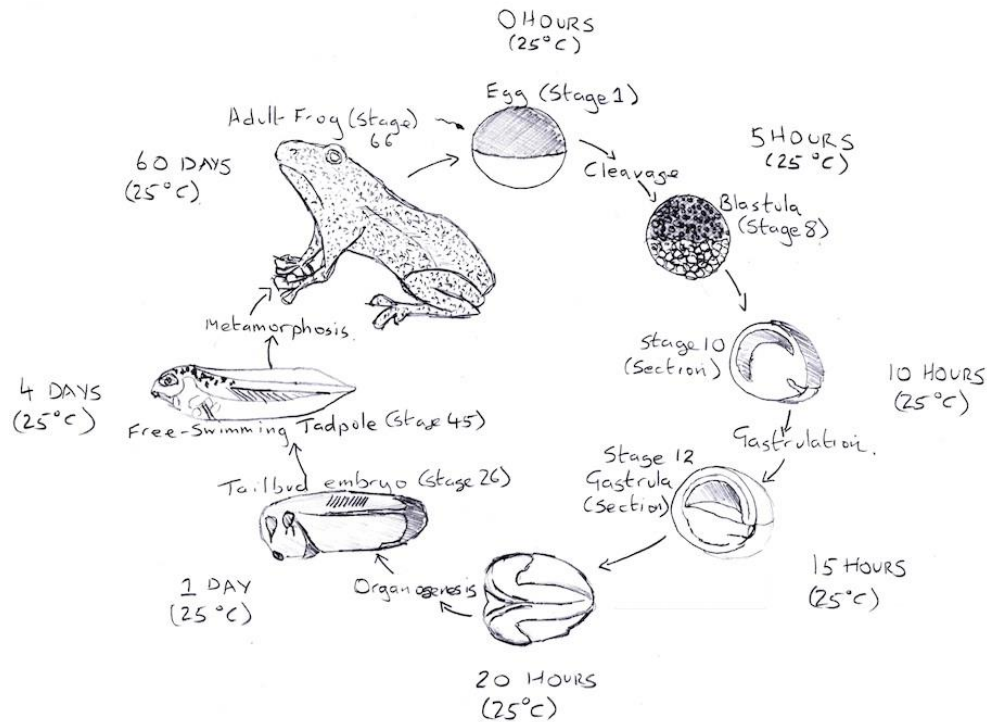 0 HOURS
(25°C)
Egg (Stage 1)
Cleavage
5 HOURS
(25°C)
Blastula
(Stage 8)
Stage 10
(Section)
10 HOURS
(25°C)
Gastrulation.
Stage 12
Gastrula
(Section)
15 HOURS
(25°C)
20 HOURS
(25°C)
Organogenesis
1 DAY
(25°C)
Tailbud embryo (Stage 26)
Free-Swimming Tadpole (Stage 45)
4 DAYS
(25°C)
Metamorphosis.
60 DAYS
(25°C)
Adult Frog (Stage)
66